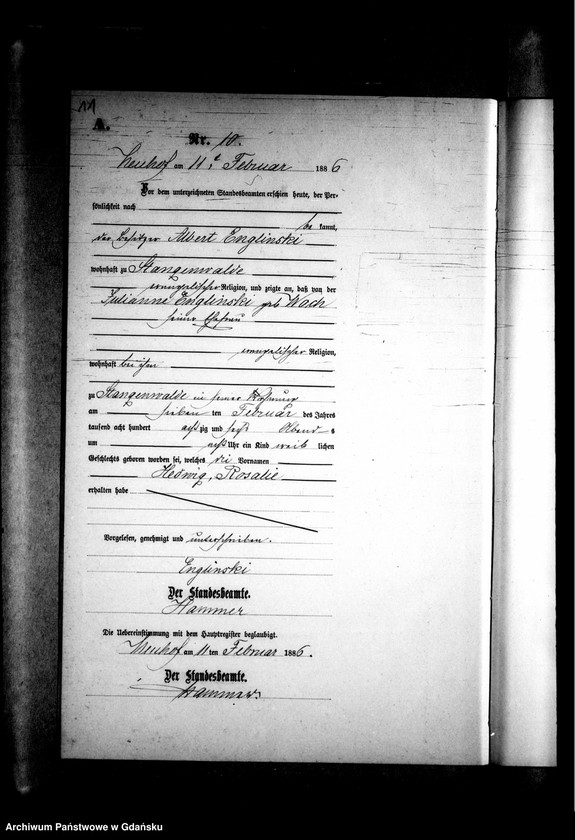 11
A.
Nr. 10.
Neuhof am 11t Februar 1886
Vor dem unterzeichneten Standesbeamten erschien heute, der Per-
sönlichkeit nach
be kannt,
der Besitzer Albert Englinski
wohnhaft zu Stangenwalde
evangelischer Religion, und zeigte an, daß von der
Julianne Englinski geb Wach
seiner Ehefrau
evangelischer Religion,
wohnhaft bei ihm
zu Stangenwalde in seiner Wohnung
am sieben ten Februar des Jahres
tausend acht hundert acht zig und sechs Abend s
um acht Uhr ein Kind weib lichen
Geschlechts geboren worden sei, welches die Vornamen
Hedwig, Rosalie
erhalten habe
Vorgelesen, genehmigt und unterschrieben.
Englinski
Der Standesbeamte.
Hammer
Die Uebereinstimmung mit dem Hauptregister beglaubigt.
Neuhof am 11 ten Februar 1886.
Der Standesbeamte.
Hammer.
Archiwum Państwowe w Gdańsku